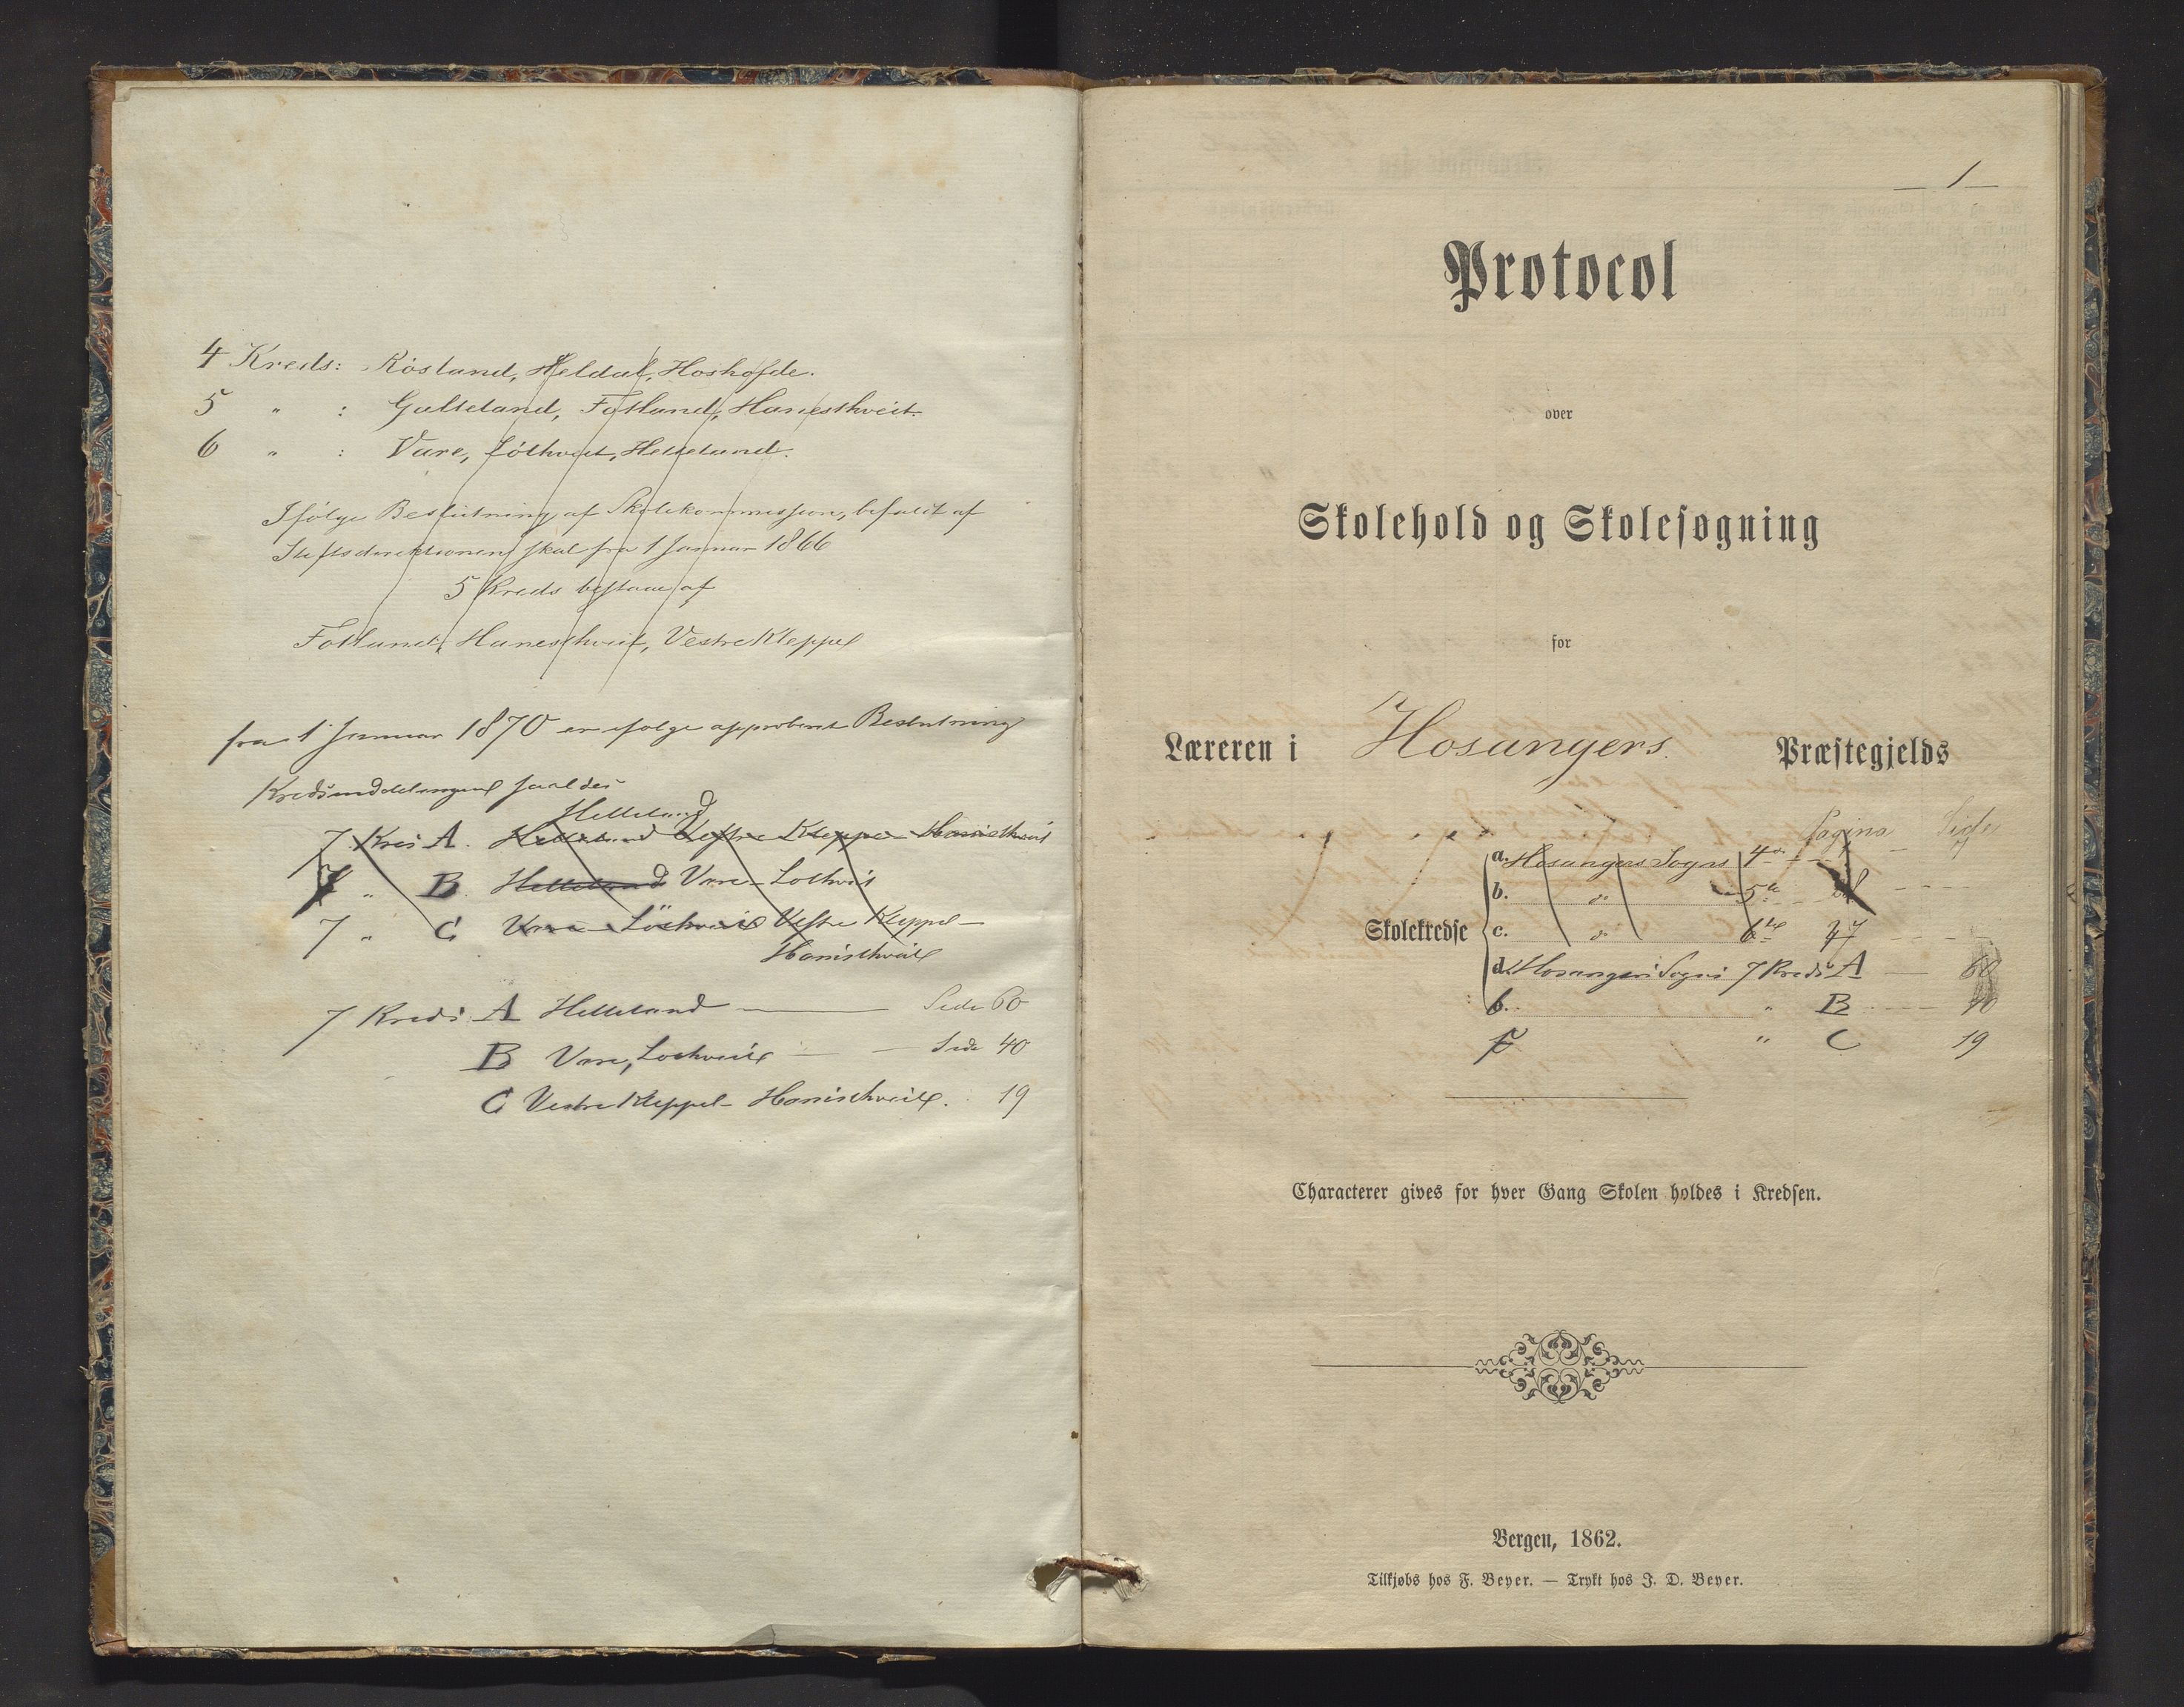 4 Kreds: Røsland, Heldal, Hoshofde.
5 " : Galteland, Fotland, Hanesthveit.
6 " : Vare, Løthveit, Helleland.
Ifølge Beslutning af Skolekommissjon, befalet af
Stiftsdirektionen skal fra 1 Januar 1866
5 Kreds bestaae af
Fotland, Hanesthveit, Vestre Kleppe
fra 1 Januar 1870 er ifølge approberet Beslutning
Kredsinddelingen saaledes
Helleland
7 Kres A. Helleland Vestre Kleppe Hanisthveit
7 " B. Helleland Vare Lothveit
7 " C Vare Löthveit Vestre Kleppe -
Hanisthveit
7 Kreds A Helleland — Side 60
B Vare, Lothveit — Side 40
C Vestre Kleppe - Hanisthveit. 19
1
Protocol
over
Skolehold og Skolesøgning
for
Læreren i Hosangers Præstegjelds
Pagina Side
a. Hosangers Sogns 4de
b. do 5te
Skolekredse c. do 6te
d. Hosangers Sogns 7 Kreds A — 60
b. " B 40
" C 19
Characterer gives for hver Gang Skolen holdes i Kredsen.
Bergen, 1862.
Tilkjøbs hos F. Beyer. — Trykt hos J. D. Beyer.